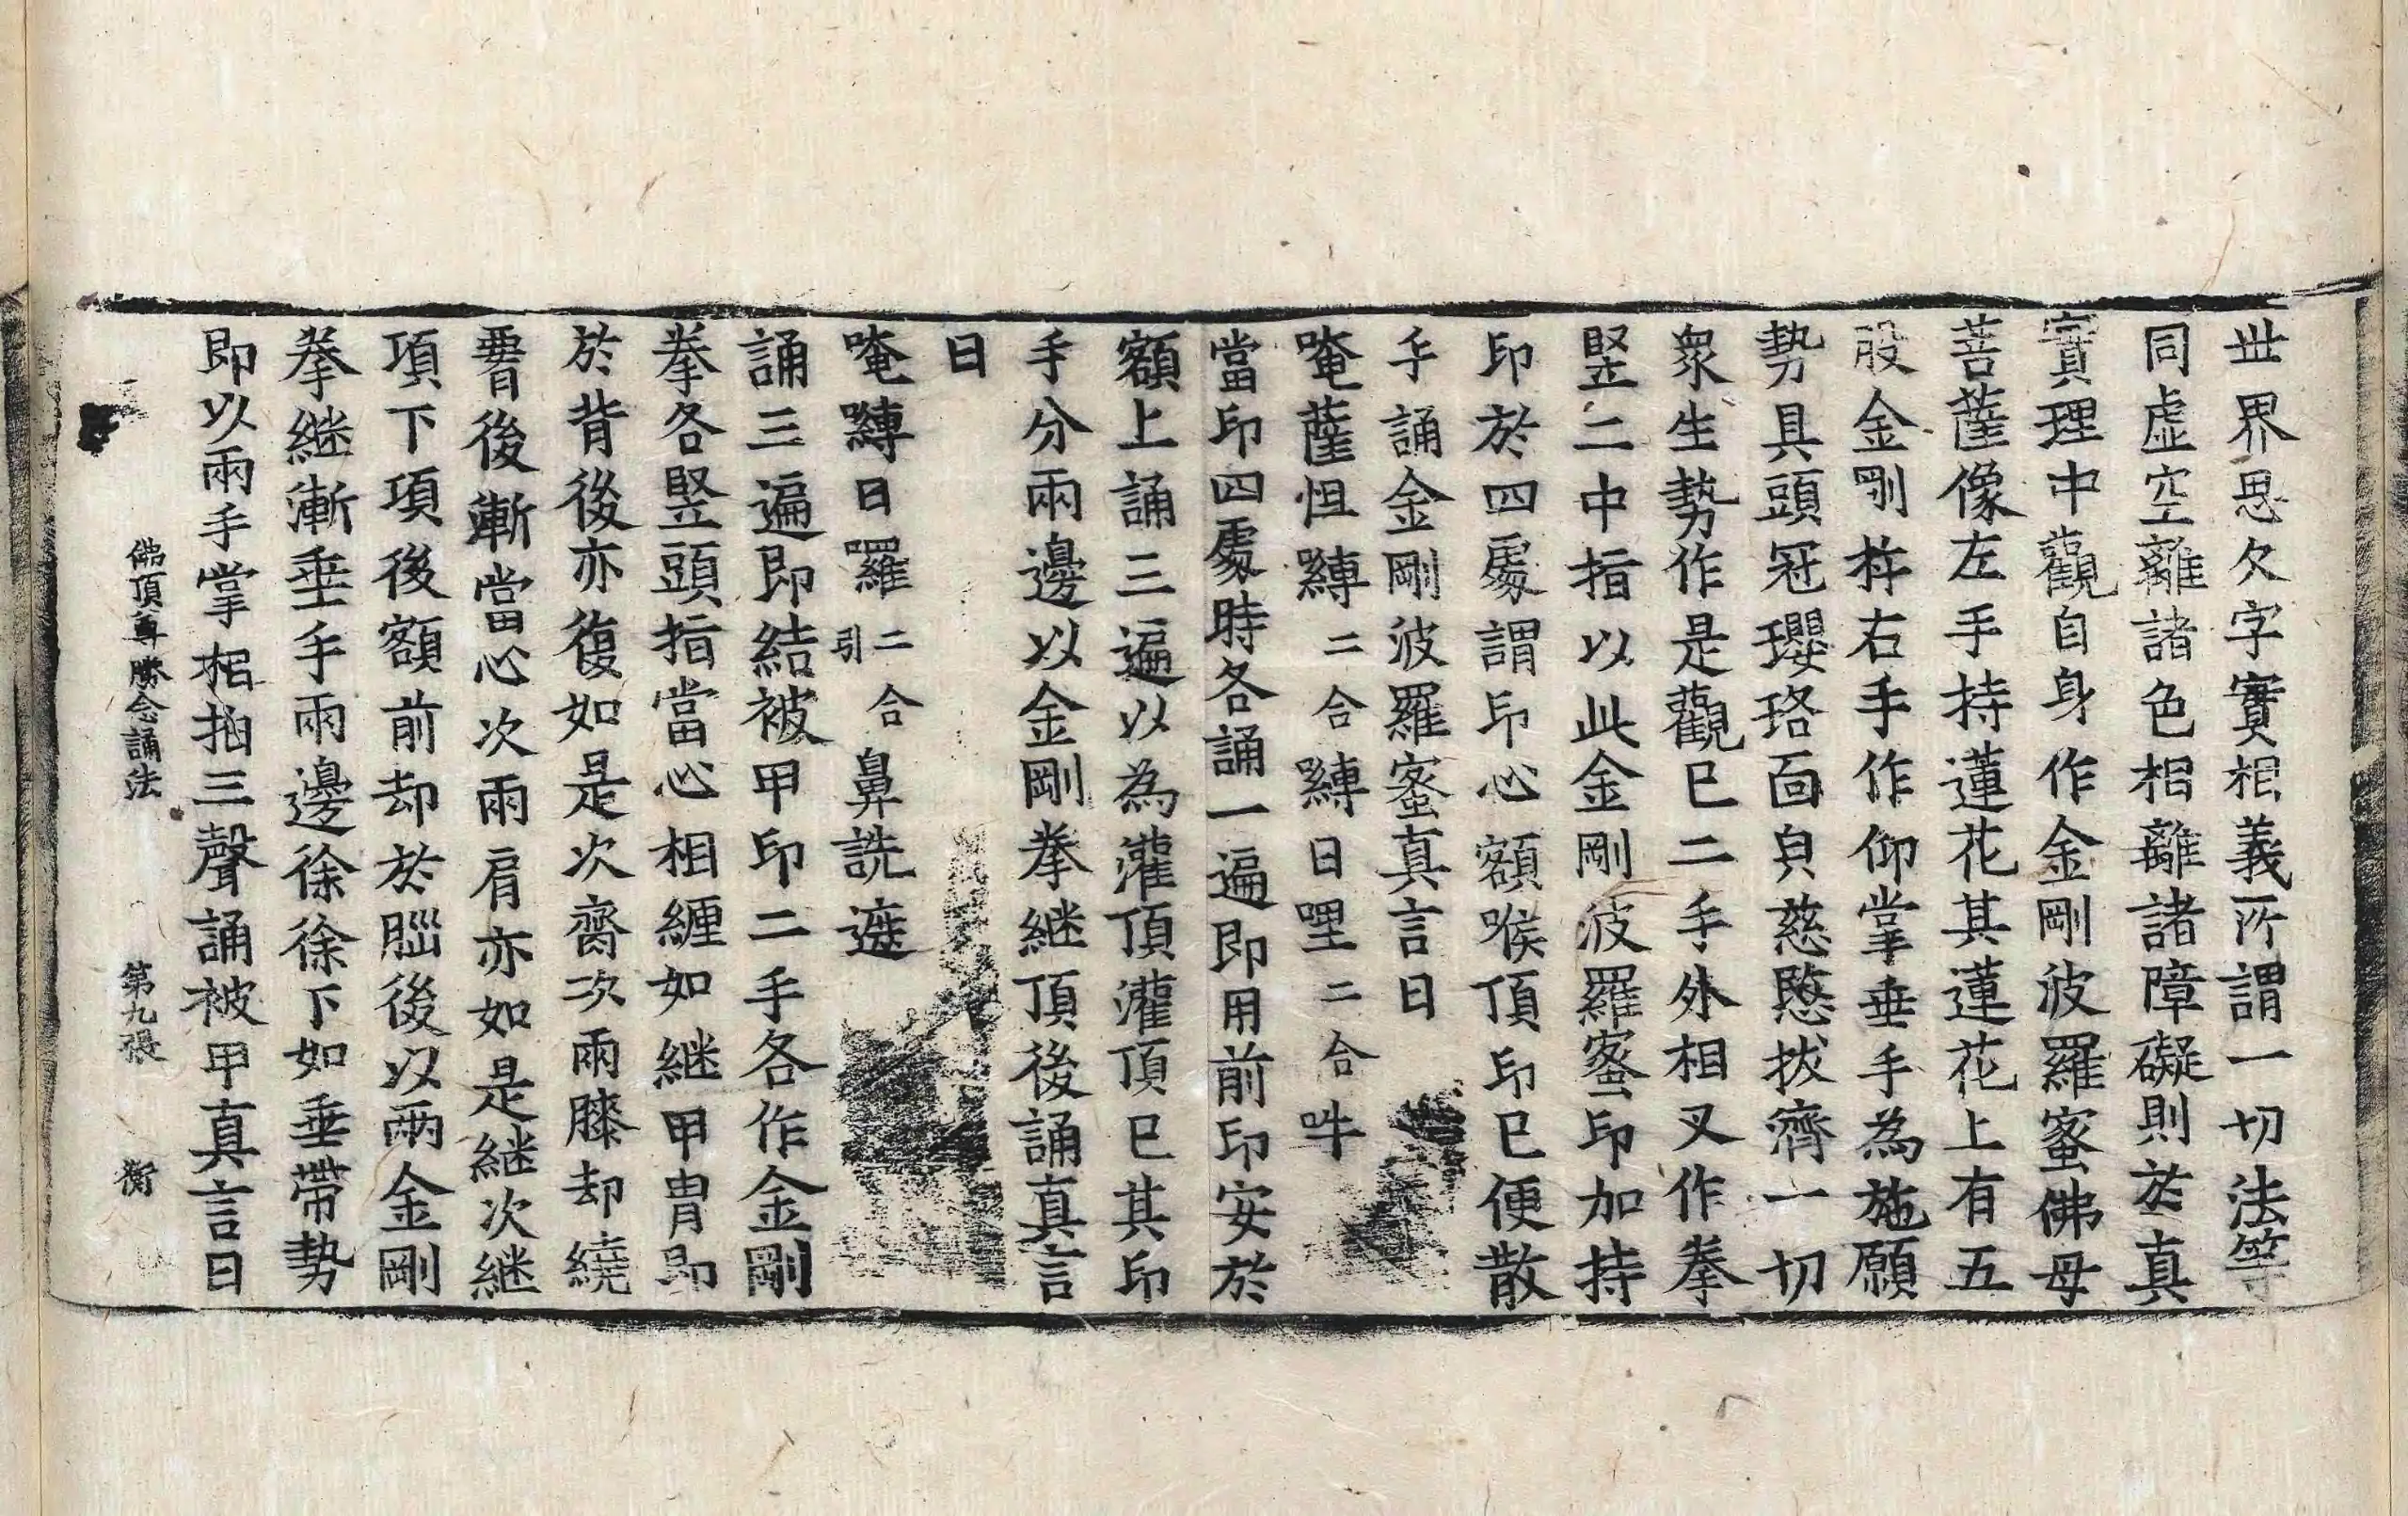 世界思欠字實相義所謂一切法等
同虛空離諸色相離諸障礙則於真
實理中觀自身作金剛波羅蜜佛母
菩薩像左手持蓮花其蓮花上有五
股金剛杵右手作仰掌垂手為施願
勢具頭冠瓔珞面皃慈愍拔濟一切
衆生勢作是觀已二手外相叉作拳
竪二中指以此金剛波羅蜜印加持
印於四處謂印心額喉頂印已便散
手誦金剛波羅蜜真言曰
唵薩怛嚩二合嚩日哩二合吽
當印四處時各誦一遍即用前印安於
額上誦三遍以為灌頂灌頂已其印
手分兩邊以金剛拳継頂後誦真言
曰
唵嚩日羅二合引鼻詵遮
誦三遍即結被甲印二手各作金剛
拳各竪頭指當心相纏如継甲胄即
於背後亦復如是次齎次兩膝却繞
署後漸當心次兩肩亦如是継次継
項下項後額前却於腦後以兩金剛
拳継漸垂手兩邊徐徐下如垂帶勢
即以兩手掌相拍三聲誦被甲真言曰
佛頂尊勝念誦法 第九張 衡